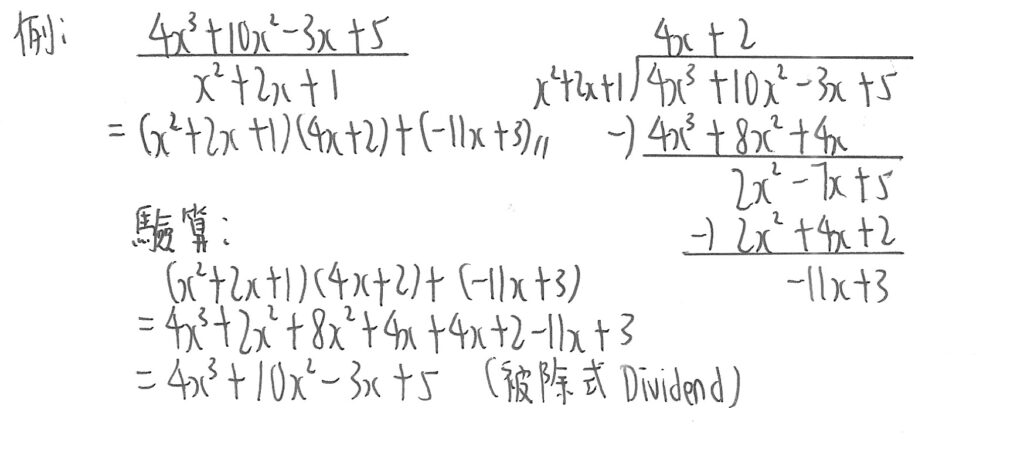 例:
4x³+10x²-3x+5
x²+2x+1
= (x²+2x+1)(4x+2)+(-11x+3)//
4x+2
x²+2x+1)4x³+10x²-3x+5
-) 4x³+8x²+4x
2x²-7x+5
-) 2x²+4x+2
-11x+3
驗算:
(x²+2x+1)(4x+2)+(-11x+3)
= 4x³+2x²+8x²+4x+4x+2-11x+3
= 4x³+10x²-3x+5 (被除式 Dividend)